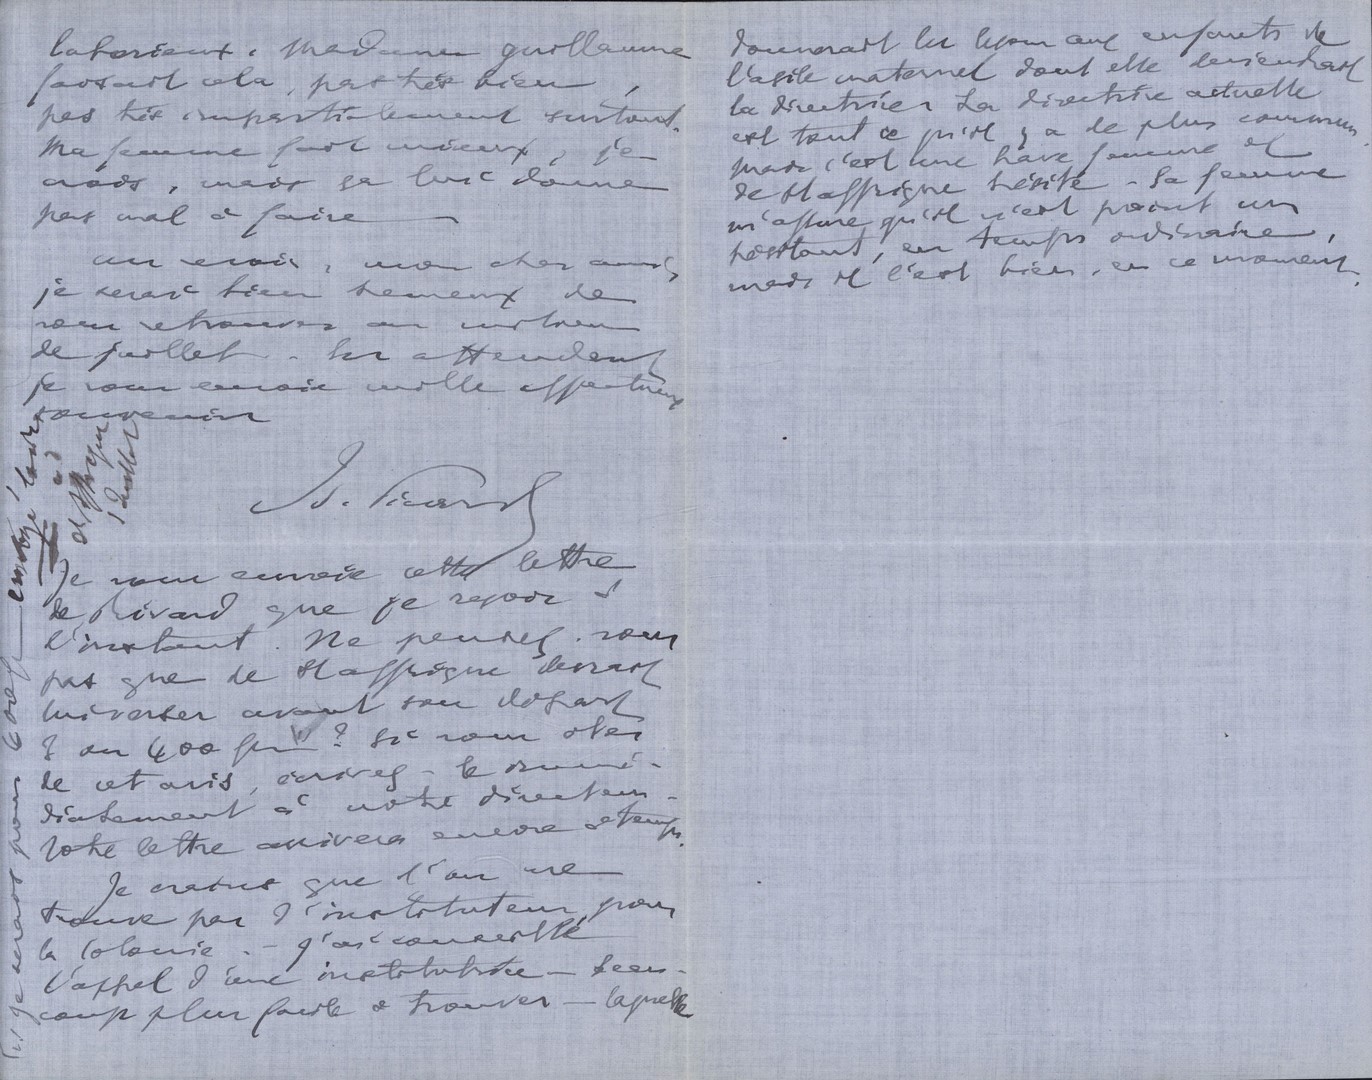 laborieux. Madame Guillaume
faisait cela, pas très bien,
pas très impartialement surtout.
Ma femme fait mieux, je
crois, mais ça lui donne
pas mal à faire
Au revoir, mon cher ami,
je serai bien heureux de
vous retrouver au milieu
de juillet. En attendant
je vous envoie mille affectueux
souvenirs
Ed. Picard
Je vous envoie cette lettre
de Rivard que je reçois à
l'instant. Ne pensez-vous
pas que de Staffrigue devrait
lui verser avant son départ
3 ou 400 frs ? Si vous êtes
de cet avis, écrivez-le immé-
diatement à notre directeur.
Votre lettre arrivera encore à temps.
Je crains que l'on ne
trouve pas d'instituteur pour
la Colonie. - J'ai conseillé
l'appel d'une institutrice - beau-
coup plus facile à trouver - laquelle
donnerait les leçons aux enfants de
l'asile maternel dont elle deviendrait
la directrice. La directrice actuelle
est tout ce qu'il y a de plus commun
mais c'est une brave femme et
de Staffrigue hésite - Sa femme
m'assure qu'il n'est point un
hésitant, en temps ordinaire,
mais il l'est bien, en ce moment.
je serais pour
envoyé
juillet